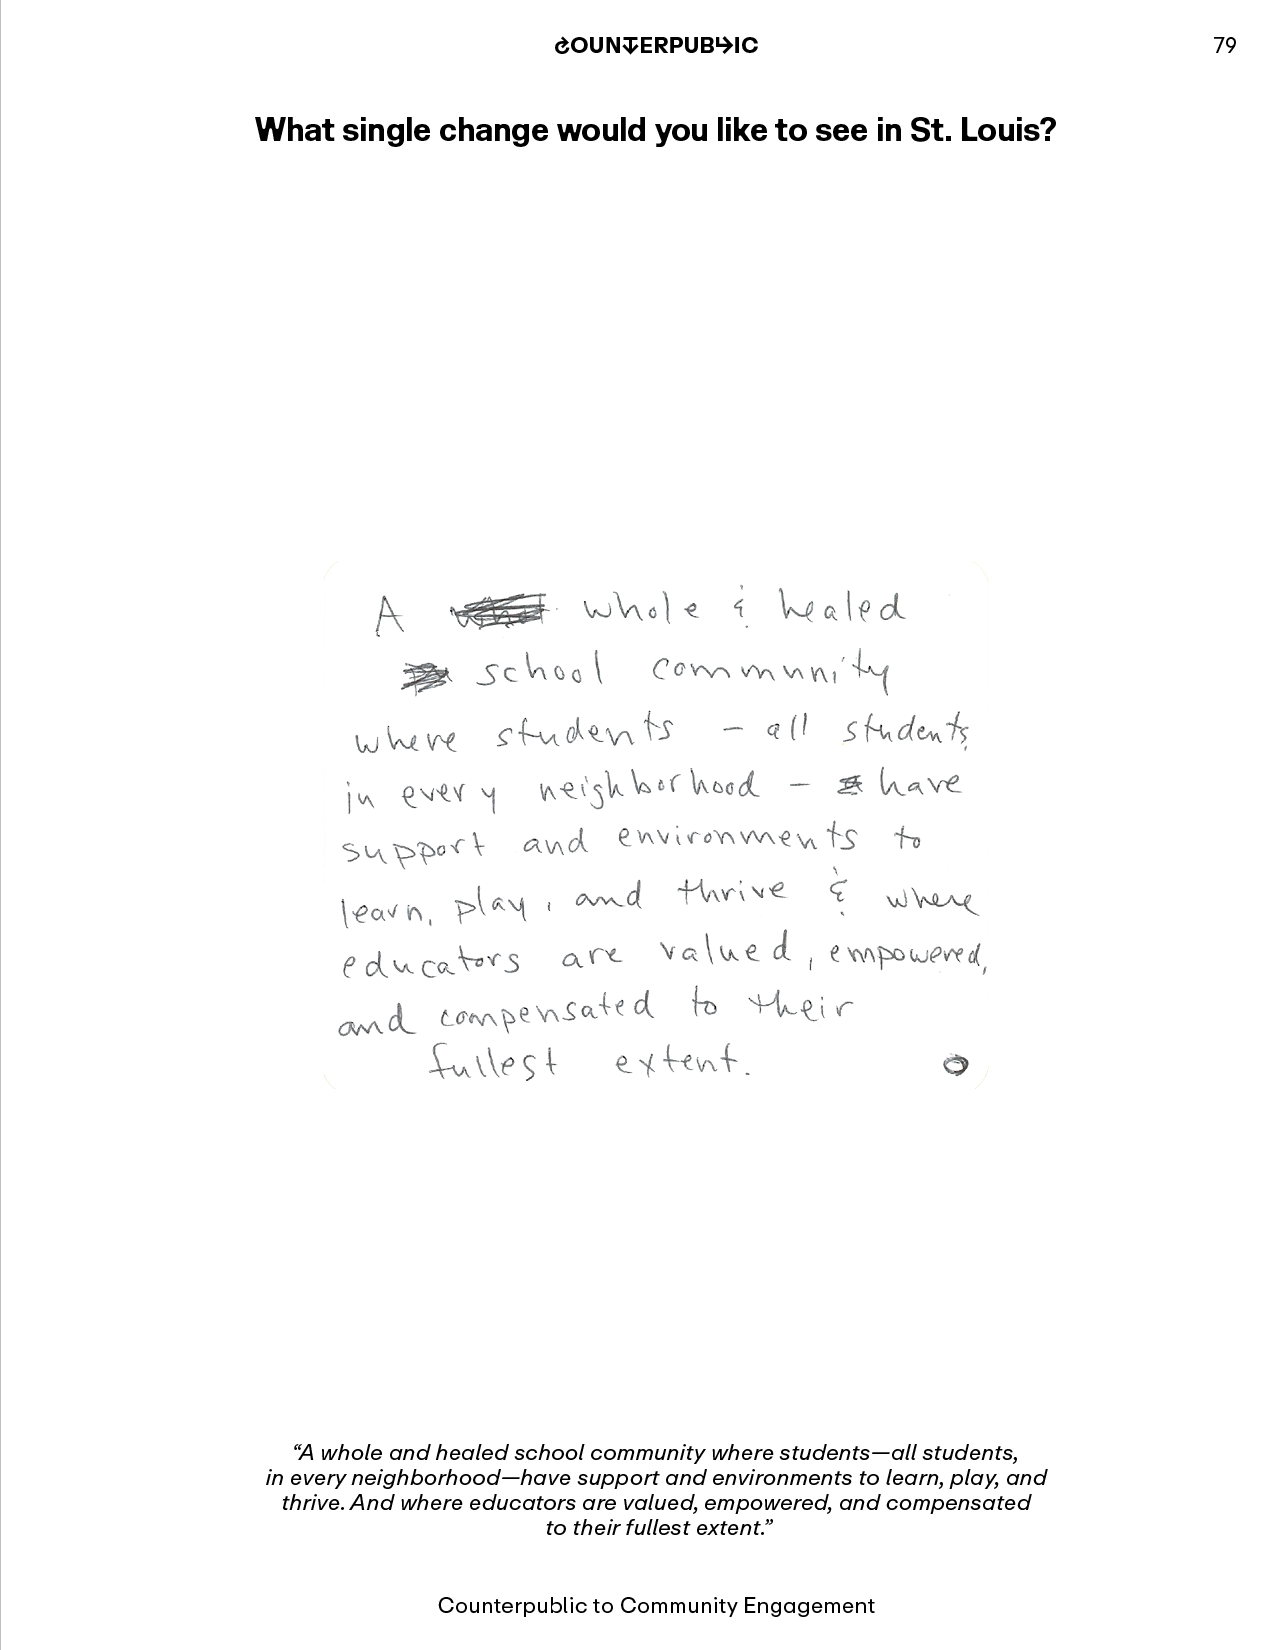 COUNTERPUBLIC
79
What single change would you like to see in St. Louis?
A whole & healed
school community
where students - all students,
in every neighborhood - have
support and environments to
learn, play, and thrive & where
educators are valued, empowered,
and compensated to their
fullest extent.
“A whole and healed school community where students—all students,
in every neighborhood—have support and environments to learn, play, and
thrive. And where educators are valued, empowered, and compensated
to their fullest extent.”
Counterpublic to Community Engagement